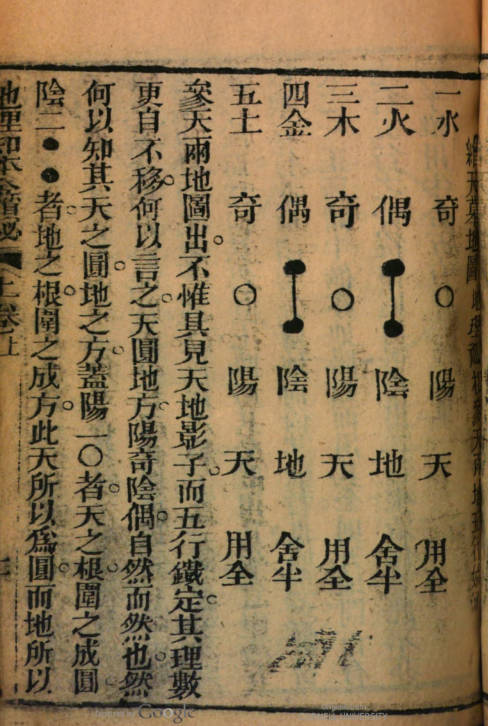 一水 奇 ○ 陽 天 用全
二火 偶 陰 地 舍半
三木 奇 ○ 陽 天 用全
四金 偶 陰 地 舍半
五土 奇 ○ 陽 天 用全
叅天兩地圖出。不惟具見天地影子。而五行鐵定。其理數
更自不移。何以言之。天圓地方。陽奇陰偶。自然而然也。然
何以知其天之圓。地之方。蓋陽一○者。天之根。圍之成圓。
陰二●●者。地之根。圍之成方。此天所以爲圓。而地所以
上卷之上
Google